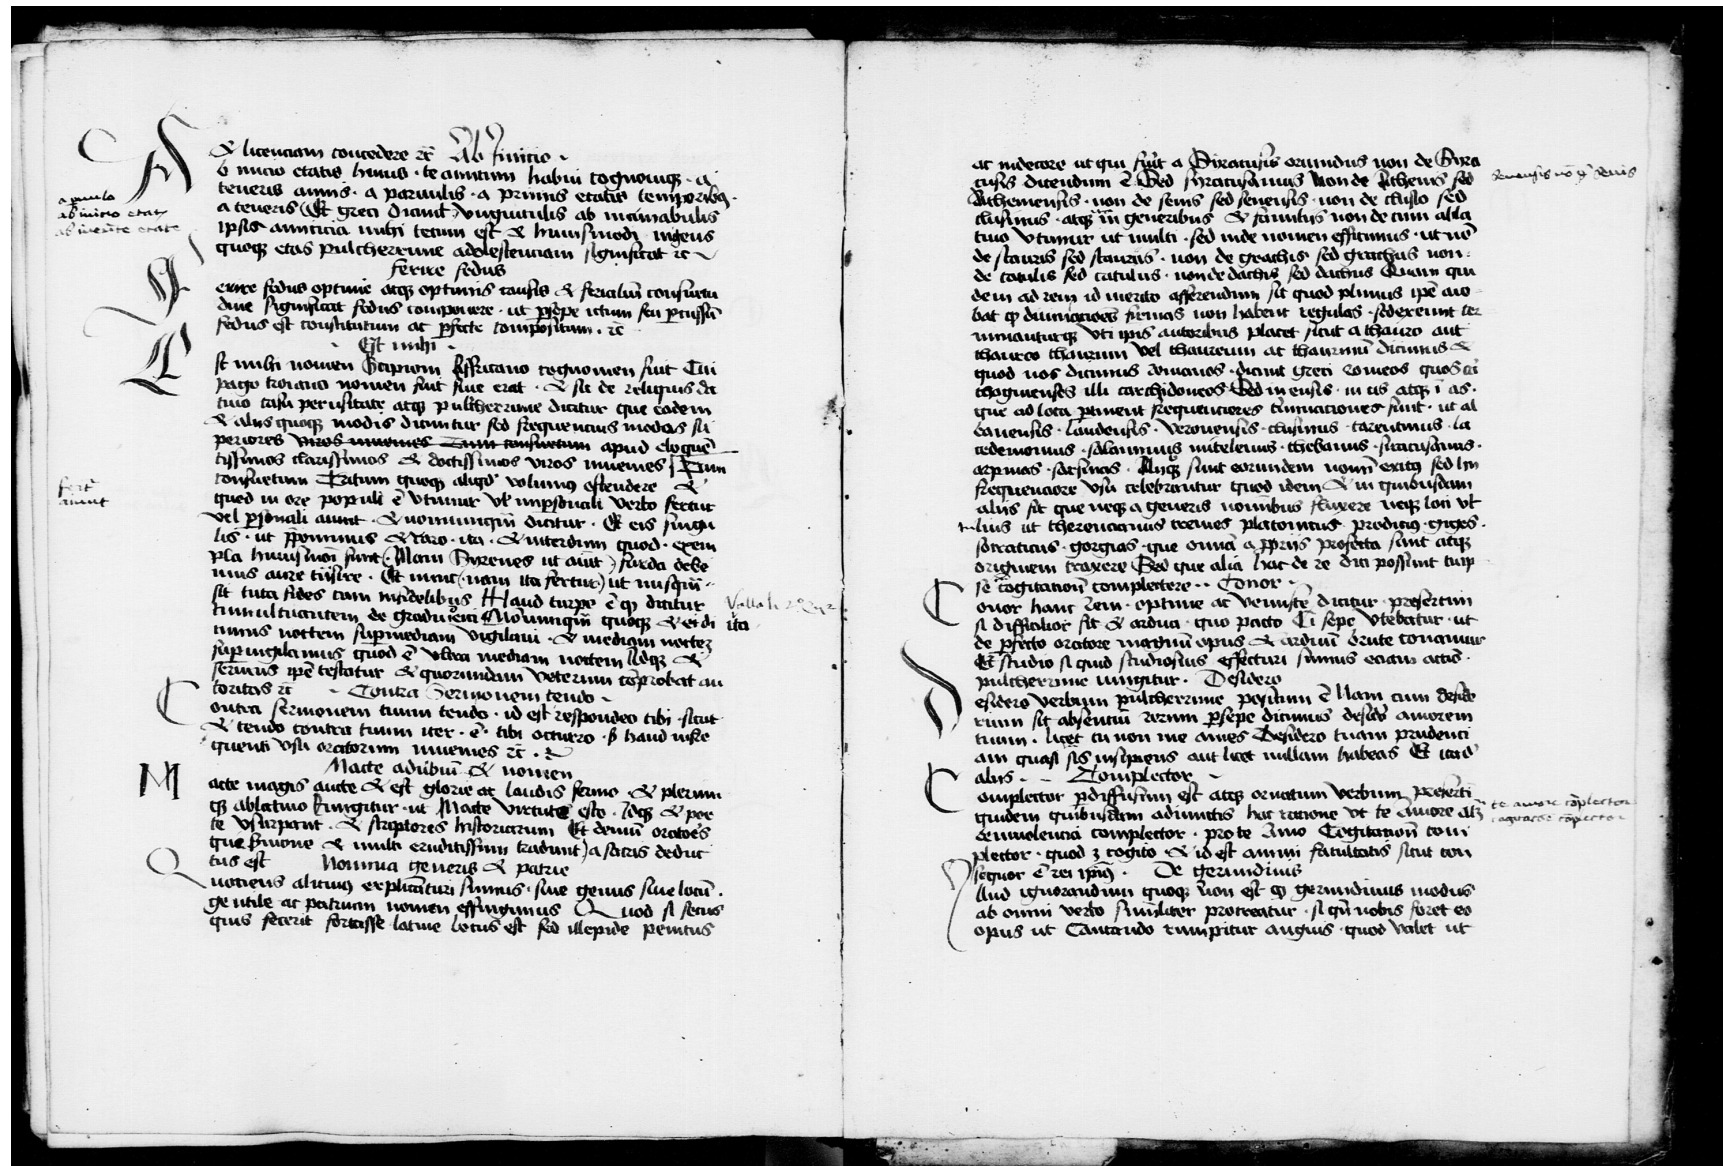 & licenciam concedere rc Ab Inicio
A
b inicio etatis huius · te amicum habui cognouiq; · a
teneris annis · a paruulis · a primis etatis temporibꝫ ·
a teneris (Et greci dicunt) unguiculis ab incunabulis
ipsis amiticia mihi tecum est & huiusmodi ingens
quoq; etas pulcherrime adolescenciam significat rc
Ferire fedus
erire fedus optime atq; optimis causis & fecialiu consuetu
dine significat fedus componere · ut psepe ictum seu pcussu
fedus est constitutum ac pfecte compositum · rc
Est mihi
E
st mihi nomen Scipioni Affricano cognomen fuit Cui
pago troiano nomen fuit siue erat · & sic de reliquis da
tiuo casu perusitate atq; pulcherrime dicitur que eodem
& aliis quoq; modis dicuntur sed frequencius modos su
periores uiros inuenies Tum consuetum apud eloque
tissimos clarissimos & doctissimos viros inuenies Tum
consuetum Tritum quoq; aliqd volumus ostendere &
quod in ore populi e vtimur vl impsonali verbo fertur
vel psonali aiunt · & nonnunqm dicitur · Et eis singu
lis · ut pponimus & raro · ita · & interdum quod · exem
pla huiusmoi sunt (Nam Syrenes ut aiut) surda debe
mus aure tnsire · Et nunc (nam ita fertur) ut nusqm
sit tuta fides cum infidelibus Haud turpe e q dicitur
tumultuantem de gradu eici Nonnunqm quoq; & et di
cimus noctem supmediam vigilaui · & mediam noctez
supuigilamus quod e vltra mediam noctem Idq; &
seruius ipe testatur & quorundam veterum coprobat au
toritas rc Contra Sermonem tendo
C
ontra sermonem tuum tendo · id est respondeo tibi · sicut
& tendo contra tuum iter · e tibi occurro · s haud infre
quenti vsu oratorum inuenies rc
Macte adubiu & nomen
M
acte magis aucte & est glorie ac laudis sermo · & plerum
q; ablatiuo iungitur · ut Macte virtute esto · Idq; & poe
te vsurpant · & scriptores historiarum Et demu oratores
que smone & multi eruditissimi tradunt) a sacris deduc
tus est Nomina generis & patrie
Q
uotiens alicuius explicaturi sumus · siue genus siue locu ·
gentile ac patrium nomen effingimus Quod si secus
quis fecerit fortasse latine locutus est sed illepide penitus
a puulo
ab inicio etatis
ab ineute etate
fert
aiunt
Valla li
ac indecore ut qui fuit a Siracusis oriundus non de Syra
cusis dicendum e Sed syracusanus Non de Athenis sed
Atheniensis · non de senis sed senensis · non de clusio sed
clusinus · atq; in generibus & familiis non de cum abla
tiuo vtimur ut multi · sed inde nomen efficimus · ut no
de scauris sed scaurus · non de grachis sed grachus non
de catulis sed catulus · non de dachis sed dachus Quam qui
dem ad rem id merito afferendum sit quod plinius ipe aio
bat q diuinacioes firmas non habent regulas · sed exeunt ter
minanturq; vti ipis autoribus placet sicut a thauro aut
thaureo thaurum vel thaureum ac thaurinu dicimus &
quod nos dicimus romanos · dicunt greci romeos quos car
thoginenses illi carchidoneos Sed in ensis · in us atq; i as ·
que ad loca ptinent frequenciores tminaciones sunt · ut al
banensis · laudensis · veronensis · clusinus · tarentinus · la
cedemonius · salaminius mitelenius · thebanus · siracusanus ·
arpinas · sarsinas · Aliiq; sunt eorundem noim exitus sed in
frequenciore vsu celebrantur quod idem & in quibusdam
aliis fit que neq; a generis nominibus fluxere neq; loci vt
ut therencianus cremes platonicus predicus · giges ·
socraticus · gorgias · que omia a ppriis profecta sunt atq;
originem traxere Sed que alia hac de re dici possunt tuip
se cogitacion complectere · Conor
C
onor hanc rem · optime ac venuste dicitur · presertim
si difficilior sit & ardua · quo pacto Ci sepe vtebatur · ut
de pfecto oratore magnum opus & arduum brute conamur
Et studio si quid studiosius effecturi sumus eciam actis ·
pulcherrime iungitur · Desidero
D
esidero verbum pulcherrime positum e Nam cum deside
rium sit absentiu rerum psepe dicimus desidero amorem
tuum · licet tu non me ames Desidero tuam prudenci
am quasi sis insipiens aut licet nullam habeas Et itid
aliis · Complector
C
omplector pdiffusum est atq; ornatum verbum preserti
quidem quibusdam adiunctis hac racione vt te Amore alz
beniuolencia complector · pro te Amo Cogitacion com
plector · quod ꝫ cogito · & id est animi facultatis sicut con
sequor e rei ipius · De gerundiuis
I
llud ignorandum quoq; non est q gerundiuus modus
ab omni verbo similiter procreatur · si qn nobis foret eo
opus ut Cantando rumpitur anguis · quod valet ut
senensis no de senis
te amore coplector
cogitacoe coplector